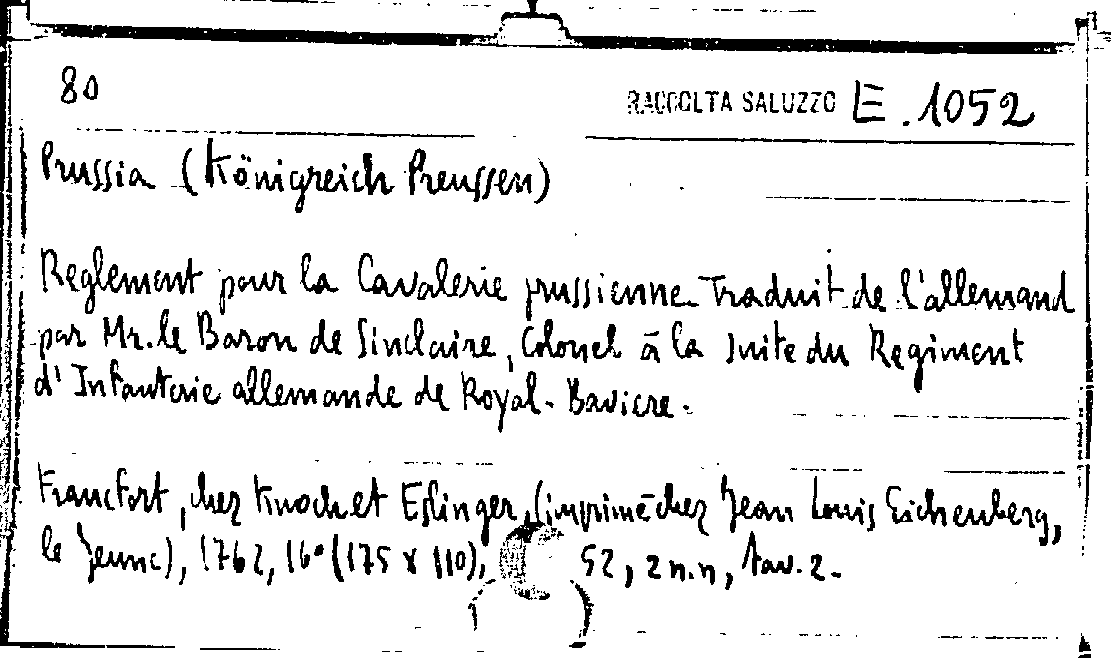 80
RACCOLTA SALUZZO E. 1052
Prussia (Königreich Preussen)
Reglement pour la Cavalerie prussienne Traduit de l'allemand
par Mr. le Baron de Sinclaire, Colonel à la suite du Regiment
d'Infanterie allemande de Royal-Baviere.
Francfort, chez Knoch et Eslinger, (imprimé chez Jean Louis Eichenberg,
le Jeune), 1762, 16° (175 x 110), 52, 2 n.n, tav. 2.